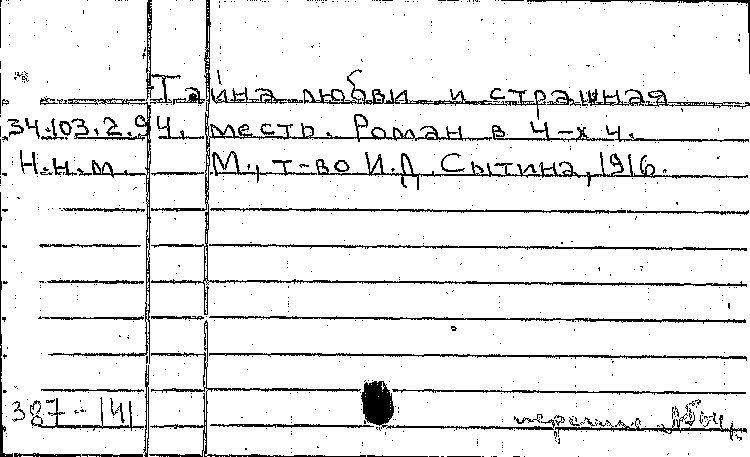 Тайна любви и страшная
34.103.2.94. месть. Роман в 4-х ч.
Н.н.м. М., т-во И.Д. Сытина, 1916.
387-141